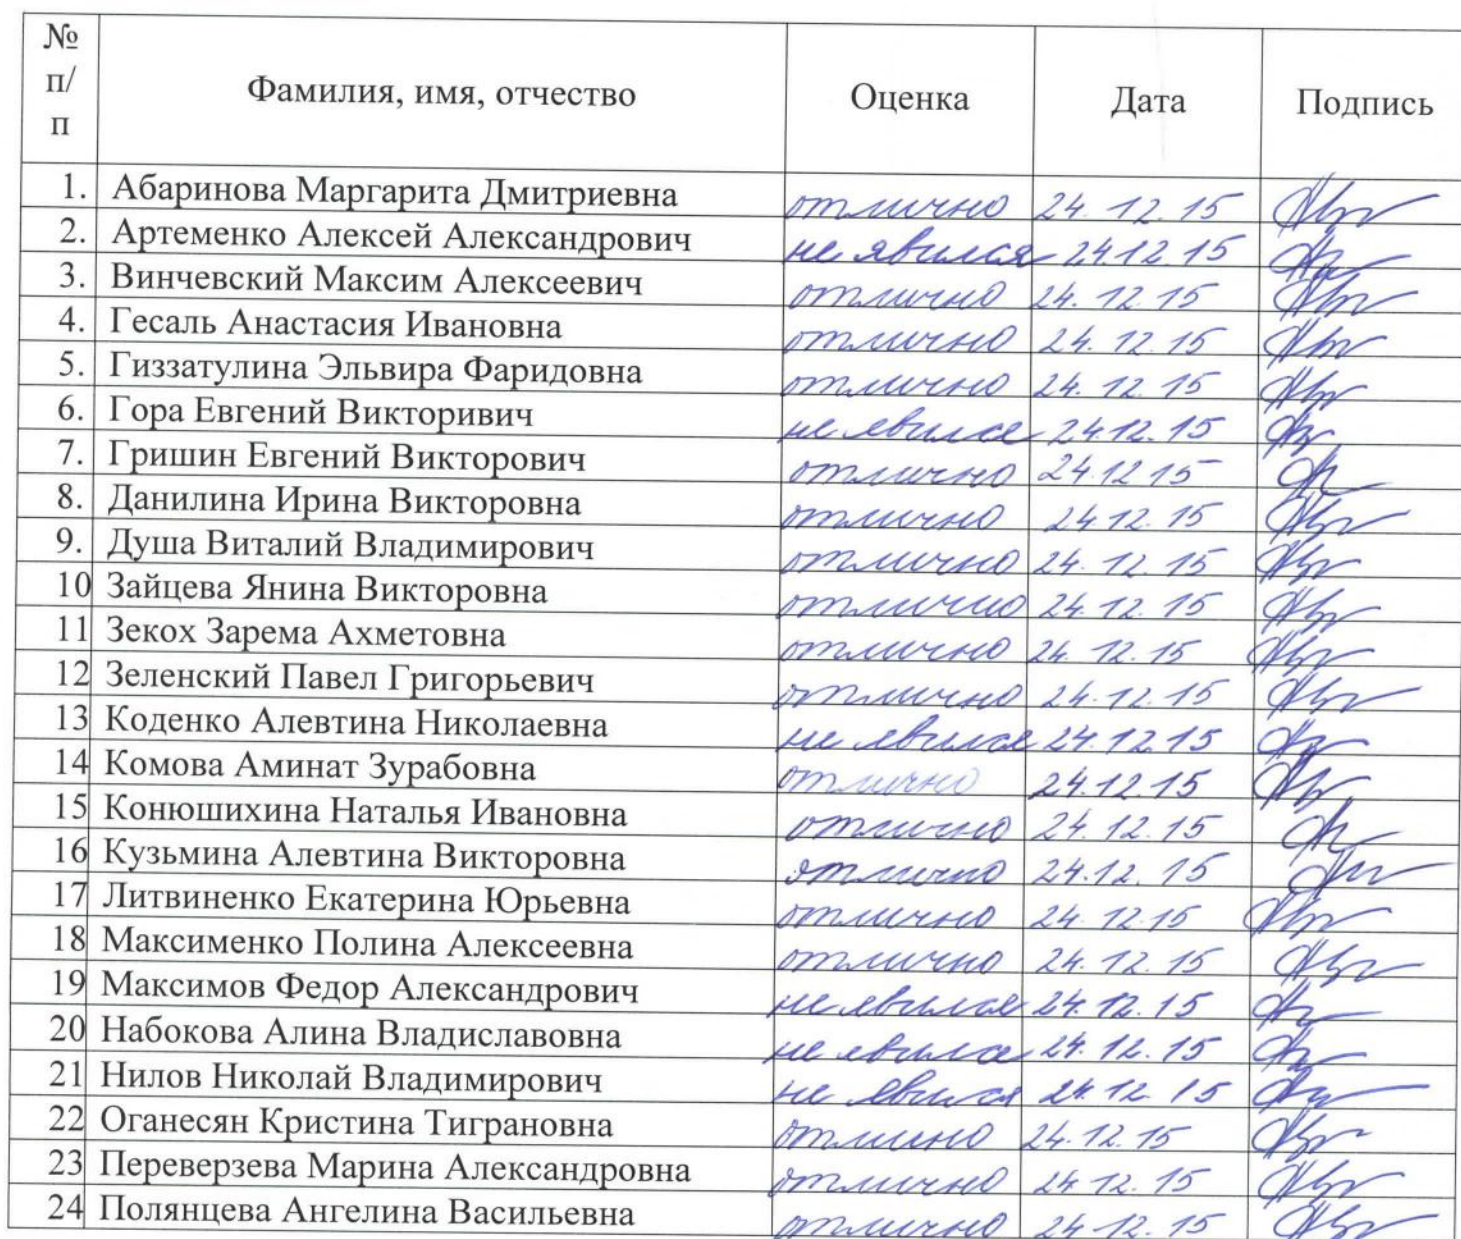 № п/п Фамилия, имя, отчество Оценка Дата Подпись
1. Абаринова Маргарита Дмитриевна отлично 24.12.15
2. Артеменко Алексей Александрович не явился 24.12.15
3. Винчевский Максим Алексеевич отлично 24.12.15
4. Гесаль Анастасия Ивановна отлично 24.12.15
5. Гиззатулина Эльвира Фаридовна отлично 24.12.15
6. Гора Евгений Викторивич не явился 24.12.15
7. Гришин Евгений Викторович отлично 24.12.15
8. Данилина Ирина Викторовна отлично 24.12.15
9. Душа Виталий Владимирович отлично 24.12.15
10 Зайцева Янина Викторовна отлично 24.12.15
11 Зекох Зарема Ахметовна отлично 24.12.15
12 Зеленский Павел Григорьевич отлично 24.12.15
13 Коденко Алевтина Николаевна не явился 24.12.15
14 Комова Аминат Зурабовна отлично 24.12.15
15 Конюшихина Наталья Ивановна отлично 24.12.15
16 Кузьмина Алевтина Викторовна отлично 24.12.15
17 Литвиненко Екатерина Юрьевна отлично 24.12.15
18 Максименко Полина Алексеевна отлично 24.12.15
19 Максимов Федор Александрович не явился 24.12.15
20 Набокова Алина Владиславовна не явился 24.12.15
21 Нилов Николай Владимирович не явился 24.12.15
22 Оганесян Кристина Тиграновна отлично 24.12.15
23 Переверзева Марина Александровна отлично 24.12.15
24 Полянцева Ангелина Васильевна отлично 24.12.15